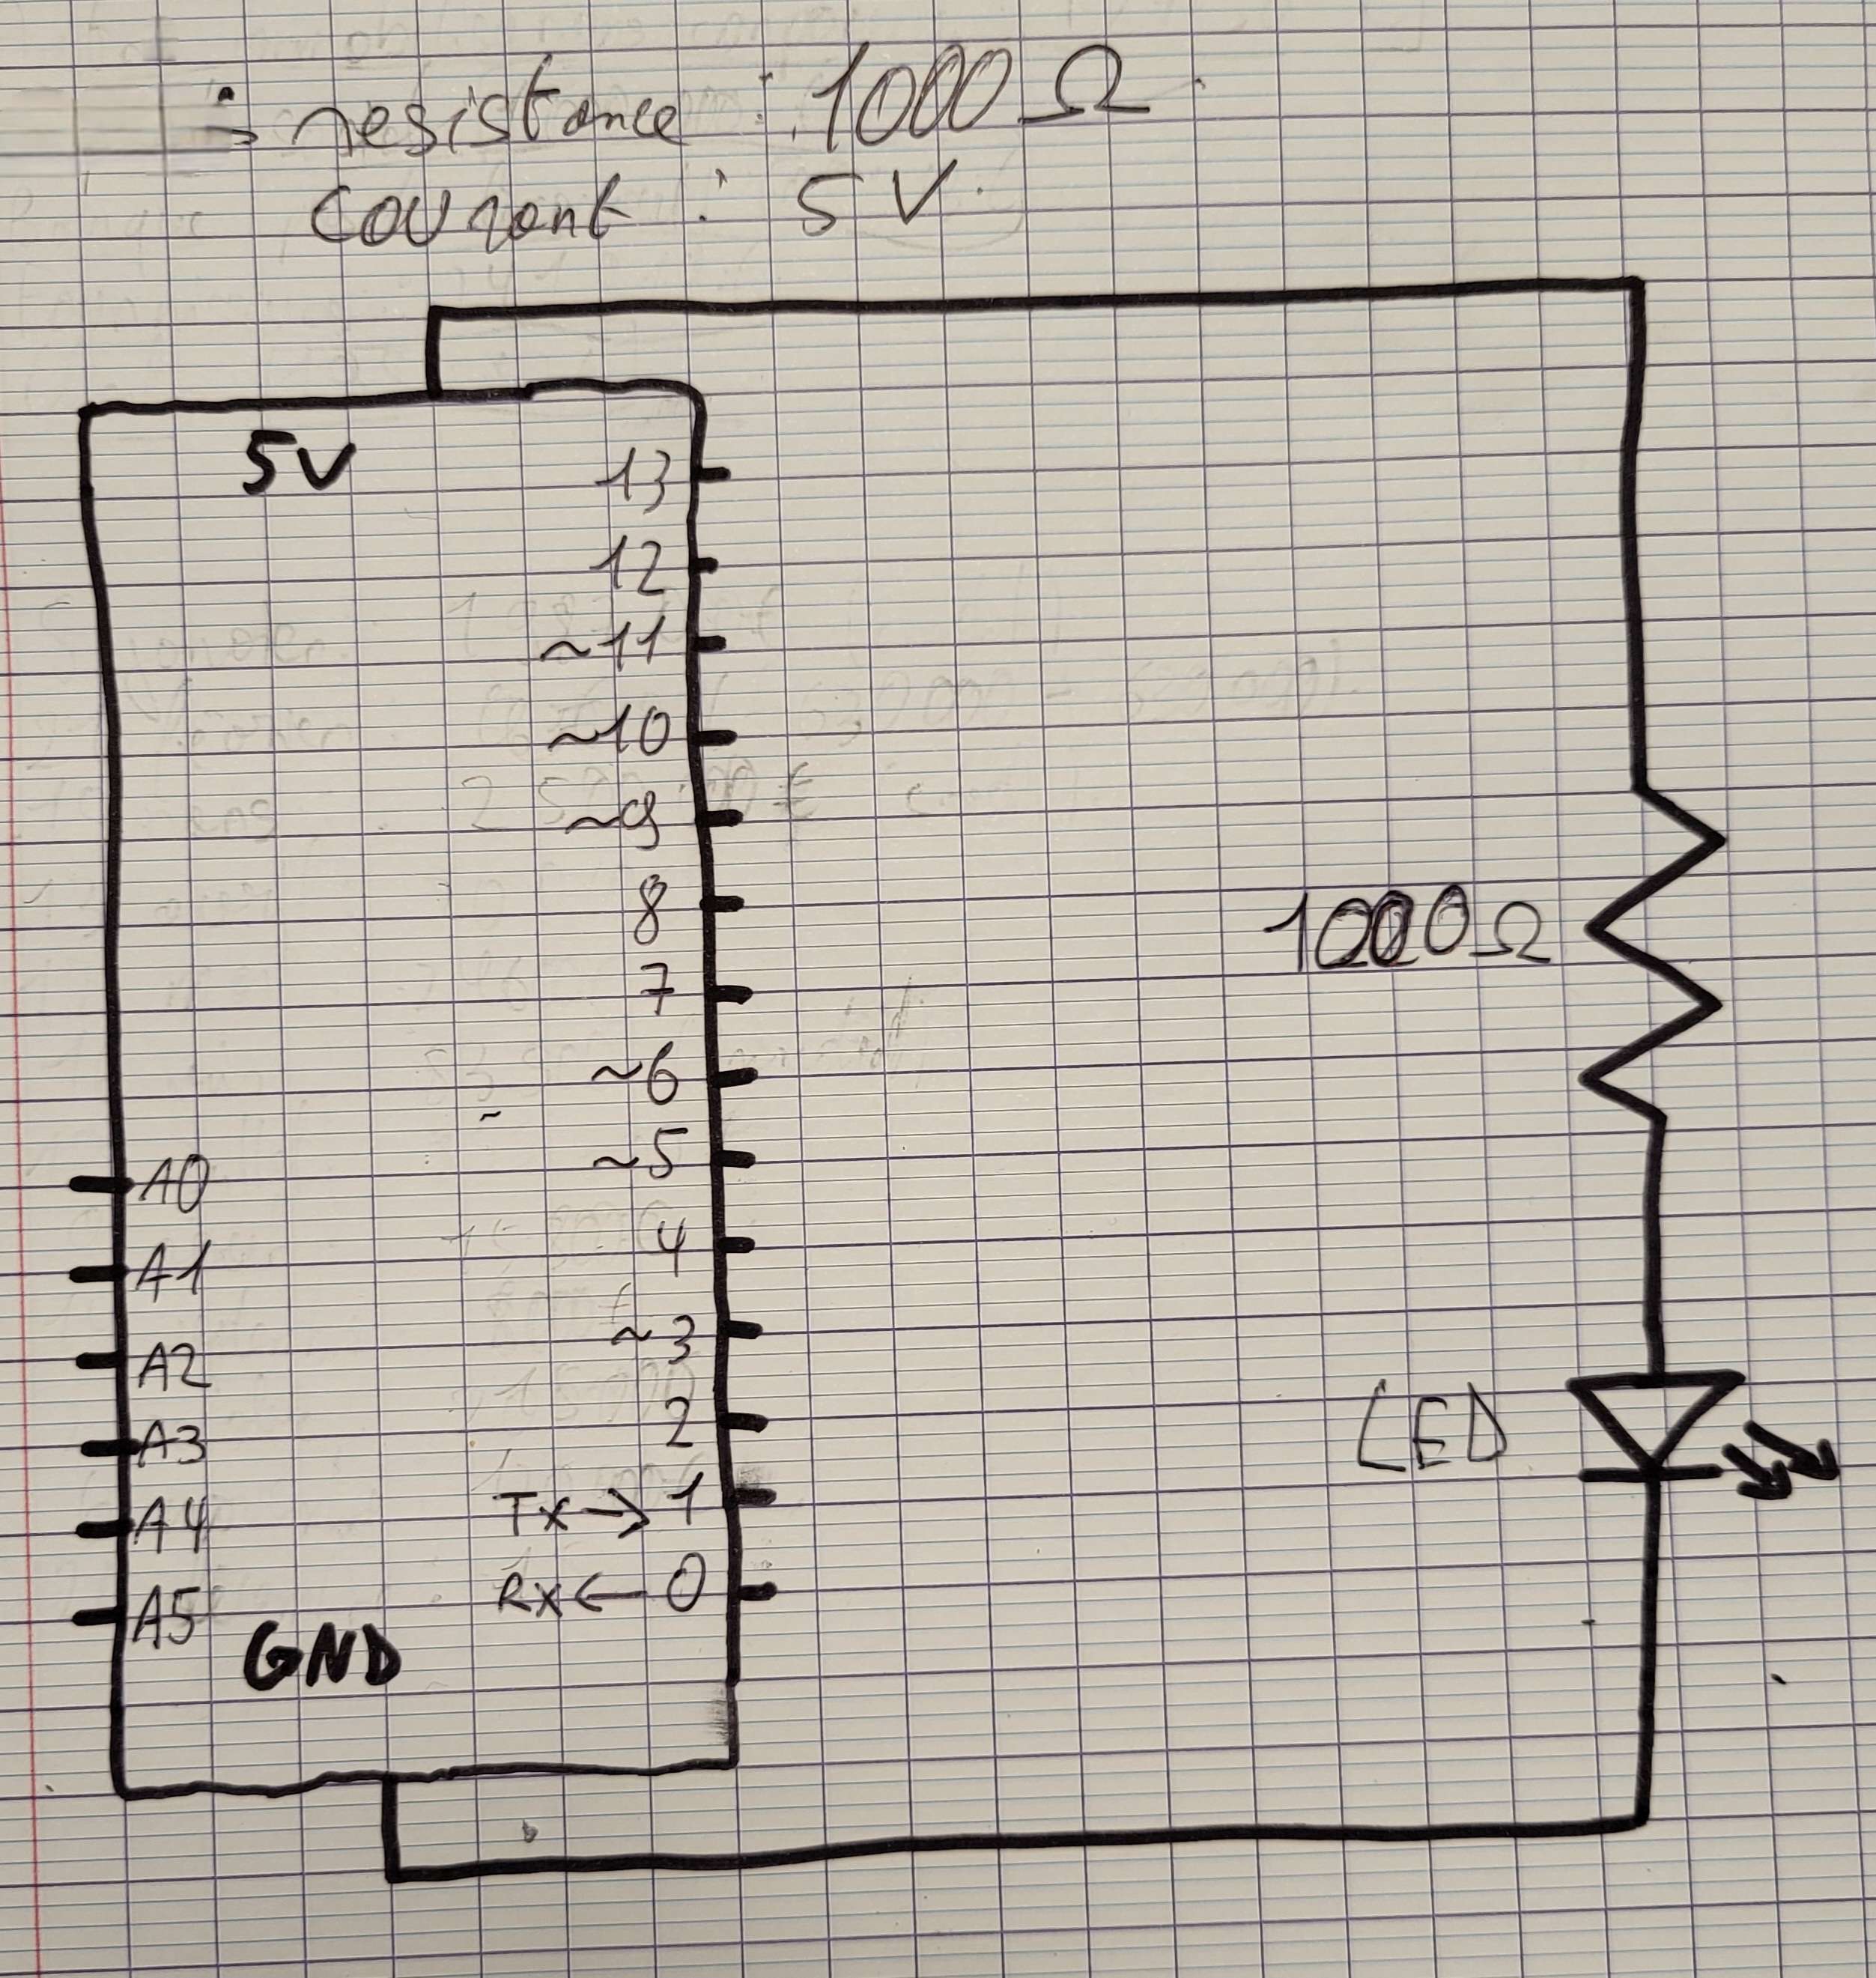 resistance : 1000 Ω
courant : 5 V
5V
13
12
~11
~10
~9
8
7
~6
~5
4
~3
2
TX→1
RX←0
A0
A1
A2
A3
A4
A5
GND
1000Ω
LED